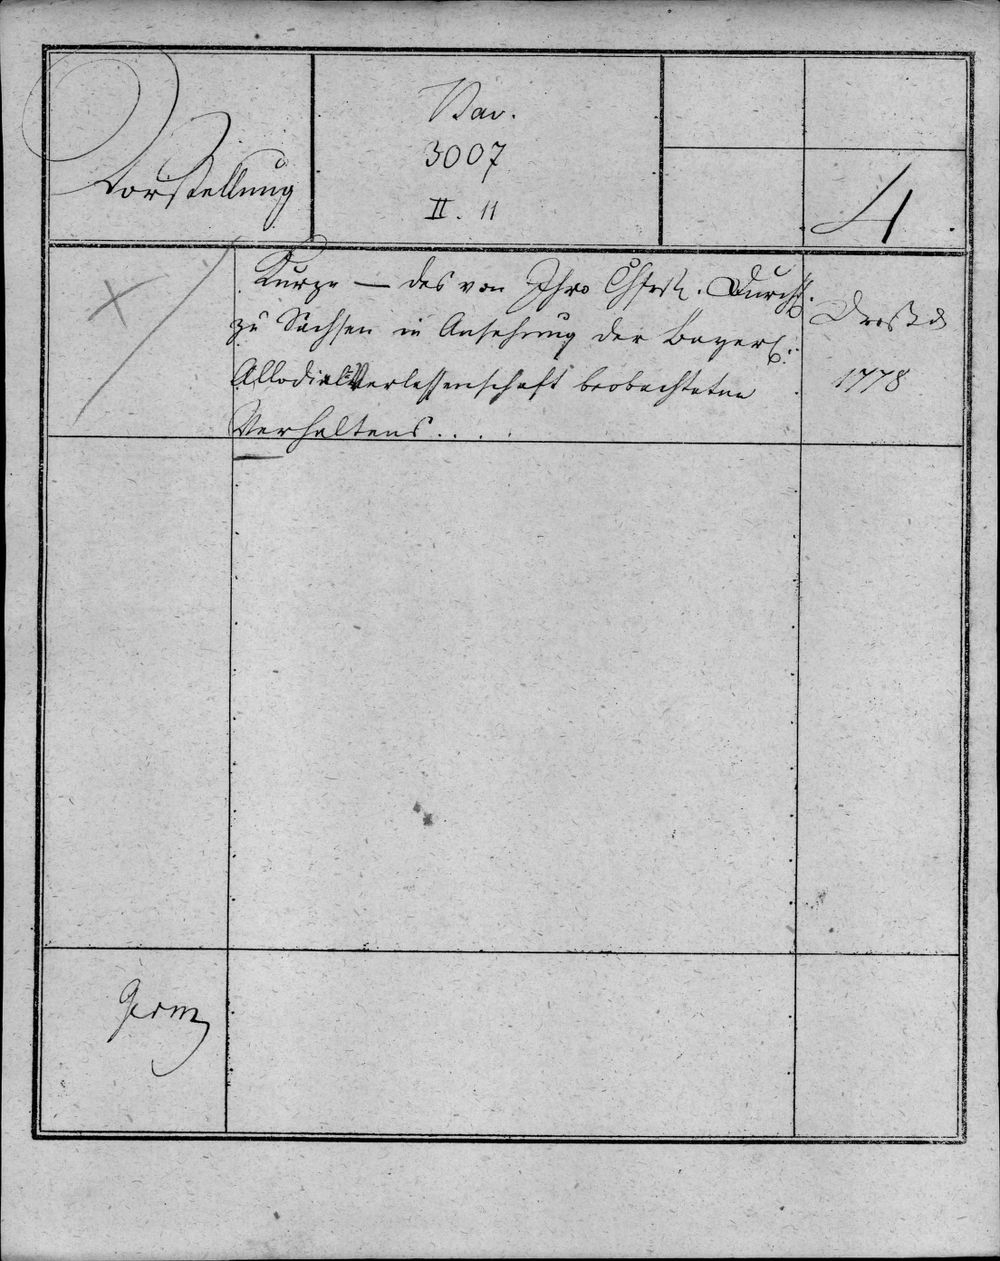 Vorstellung
Bav.
3007
II. 11
4.
Kurze — des von Ihro Chfrstl. Durchl.
zu Sachsen in Ansehung der Bayerl.
Allodial-Verlassenschaft beobachteten
Verhaltens....
Dresd
1778
Germ